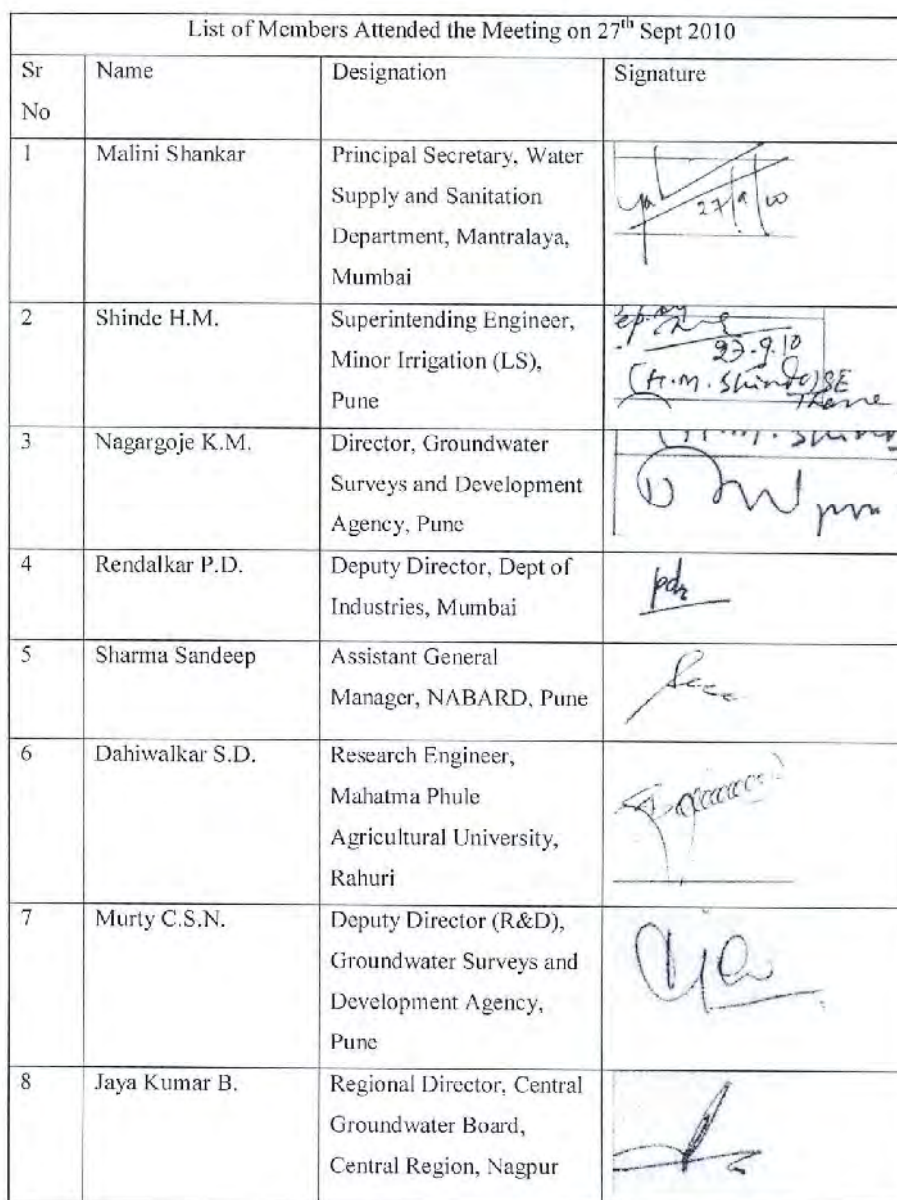 List of Members Attended the Meeting on 27th Sept 2010
Sr No
Name
Designation
Signature
1
Malini Shankar
Principal Secretary, Water
Supply and Sanitation
Department, Mantralaya,
Mumbai
27/9/
2
Shinde H.M.
Superintending Engineer,
Minor Irrigation (LS),
Pune
27.9.10
(H.M. Shinde) SE
Thane
3
Nagargoje K.M.
Director, Groundwater
Surveys and Development
Agency, Pune
4
Rendalkar P.D.
Deputy Director, Dept of
Industries, Mumbai
pdr
5
Sharma Sandeep
Assistant General
Manager, NABARD, Pune
6
Dahiwalkar S.D.
Research Engineer,
Mahatma Phule
Agricultural University,
Rahuri
7
Murty C.S.N.
Deputy Director (R&D),
Groundwater Surveys and
Development Agency,
Pune
8
Jaya Kumar B.
Regional Director, Central
Groundwater Board,
Central Region, Nagpur